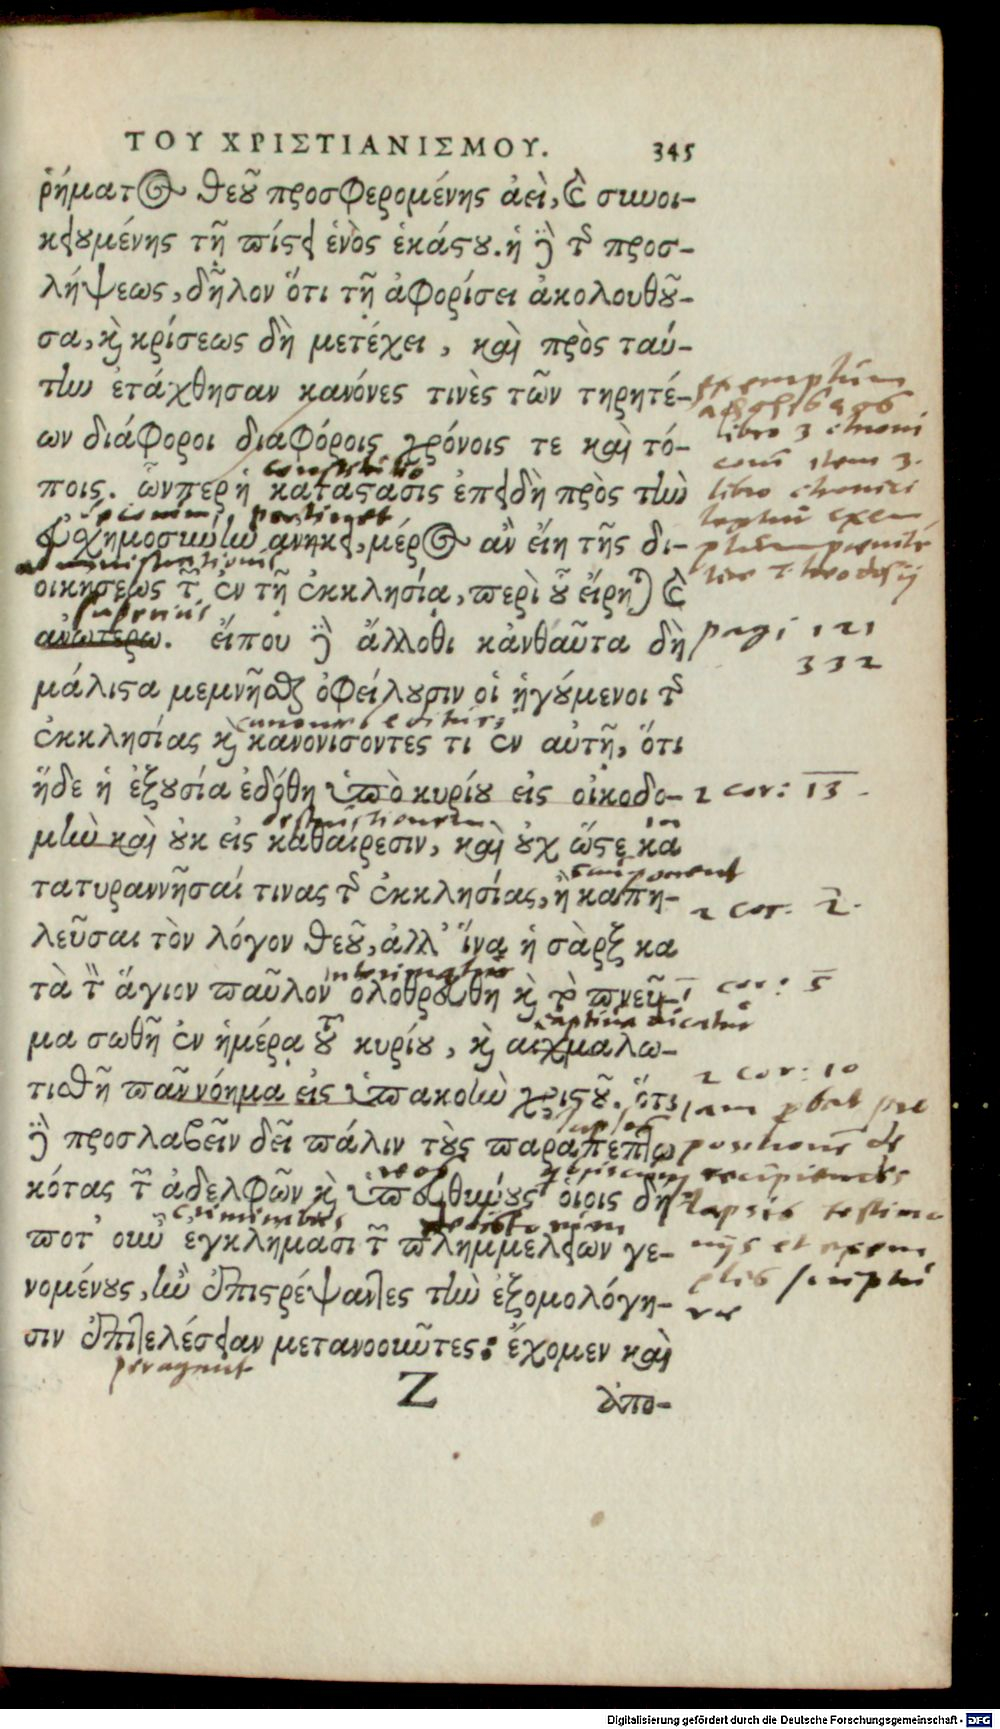 ΤΟΥ ΧΡΙΣΤΙΑΝΙΣΜΟΥ. 345
ῥήματος θεοῦ προσφερομένης ἀεὶ, καὶ συνοι-
κειουμένης τῇ πίστει ἑνὸς ἑκάστου. ἡ δὲ τῆς προσ-
λήψεως, δῆλον ὅτι τῇ ἀφορίσει ἀκολουθοῦ-
σα, καὶ κρίσεως δὴ μετέχει, καὶ πρὸς ταύ-
την ἐτάχθησαν κανόνες τινὲς τῶν τηρητέ-
ων διάφοροι διαφόροις χρόνοις τε καὶ τό-
ποις. ὧνπερ ἡ κατάστασις ἐπειδὴ πρὸς τὴν
εὐσχημοσύνην ἀνήκει, μέρος ἂν εἴη τῆς δι-
οικήσεως τῆς ἐν τῇ ἐκκλησίᾳ, περὶ οὗ εἴρηται καὶ
ἀνώτερω. εἴπου δὲ ἄλλοθι κἀνθαῦτα δὴ
μάλιστα μεμνῆσθαι ὀφείλουσιν οἱ ἡγούμενοι τῆς
ἐκκλησίας καὶ κανονίσοντες τι ἐν αὐτῇ, ὅτι
ἥδε ἡ ἐξουσία ἐδόθη ὑπὸ κυρίου εἰς οἰκοδο-
μὴν καὶ οὐκ εἰς καθαίρεσιν, καὶ οὐχ ὥστε κα
τατυραννῆσαί τινας τῆς ἐκκλησίας, ἢ καπη-
λεῦσαι τὸν λόγον θεοῦ, ἀλλ' ἵνα ἡ σὰρξ κα
τὰ τὸν ἅγιον παῦλον ὀλοθρευθῇ καὶ τὸ πνεῦ-
μα σωθῇ ἐν ἡμέρᾳ τοῦ κυρίου, καὶ αἰχμαλω-
τισθῇ πᾶν νόημα εἰς ὑπακοὴν χριστοῦ. ὅτι
δὲ προσλαβεῖν δεῖ πάλιν τοὺς παραπεπτω
κότας τῶν ἀδελφῶν καὶ ὑπευθύνους οἵοις δή
ποτ' οὖν ἐγκλήμασι τῶν πλημμελειῶν γε-
νομένους, ἢν ἐπιστρέψαντες τὴν ἐξομολόγη-
σιν ἐπιτελέσειαν μετανοοῦντες: ἔχομεν καὶ
Z ἀπο-
libro 3
libro chronici
pagi 121
332
2 cor: 13.
2 cor. 2.
1 cor: 5
2 cor: 10
recipiendis
lapsis
superius
peragent
Digitalisierung gefördert durch die Deutsche Forschungsgemeinschaft - DFG